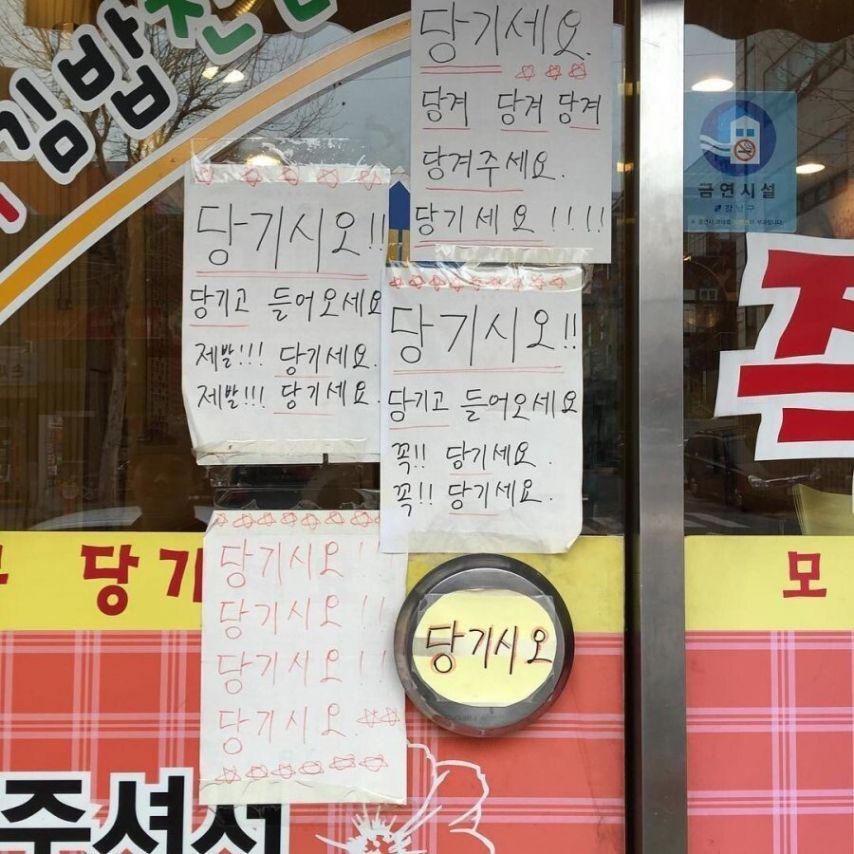 김밥천
당기세요.
당겨 당겨 당겨
당겨주세요.
당기세요!!!!
금연시설
강남구
당기시오!!
당기고 들어오세요
제발!!! 당기세요.
제발!!! 당기세요.
당기시오!!
당기고 들어오세요
꼭!! 당기세요.
꼭!! 당기세요.
당기
모
당기시오!!
당기시오!!
당기시오!!
당기시오.
당기시오
주셔서